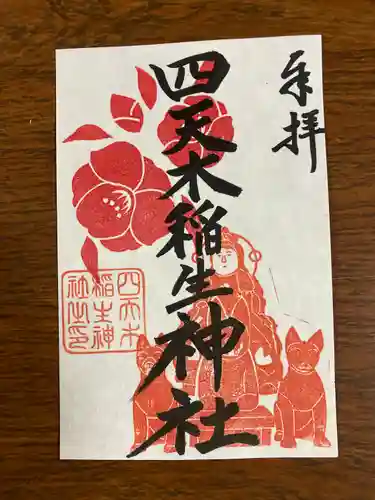 奉拝
四天木稲生神社
四天木
稲生神
社之印